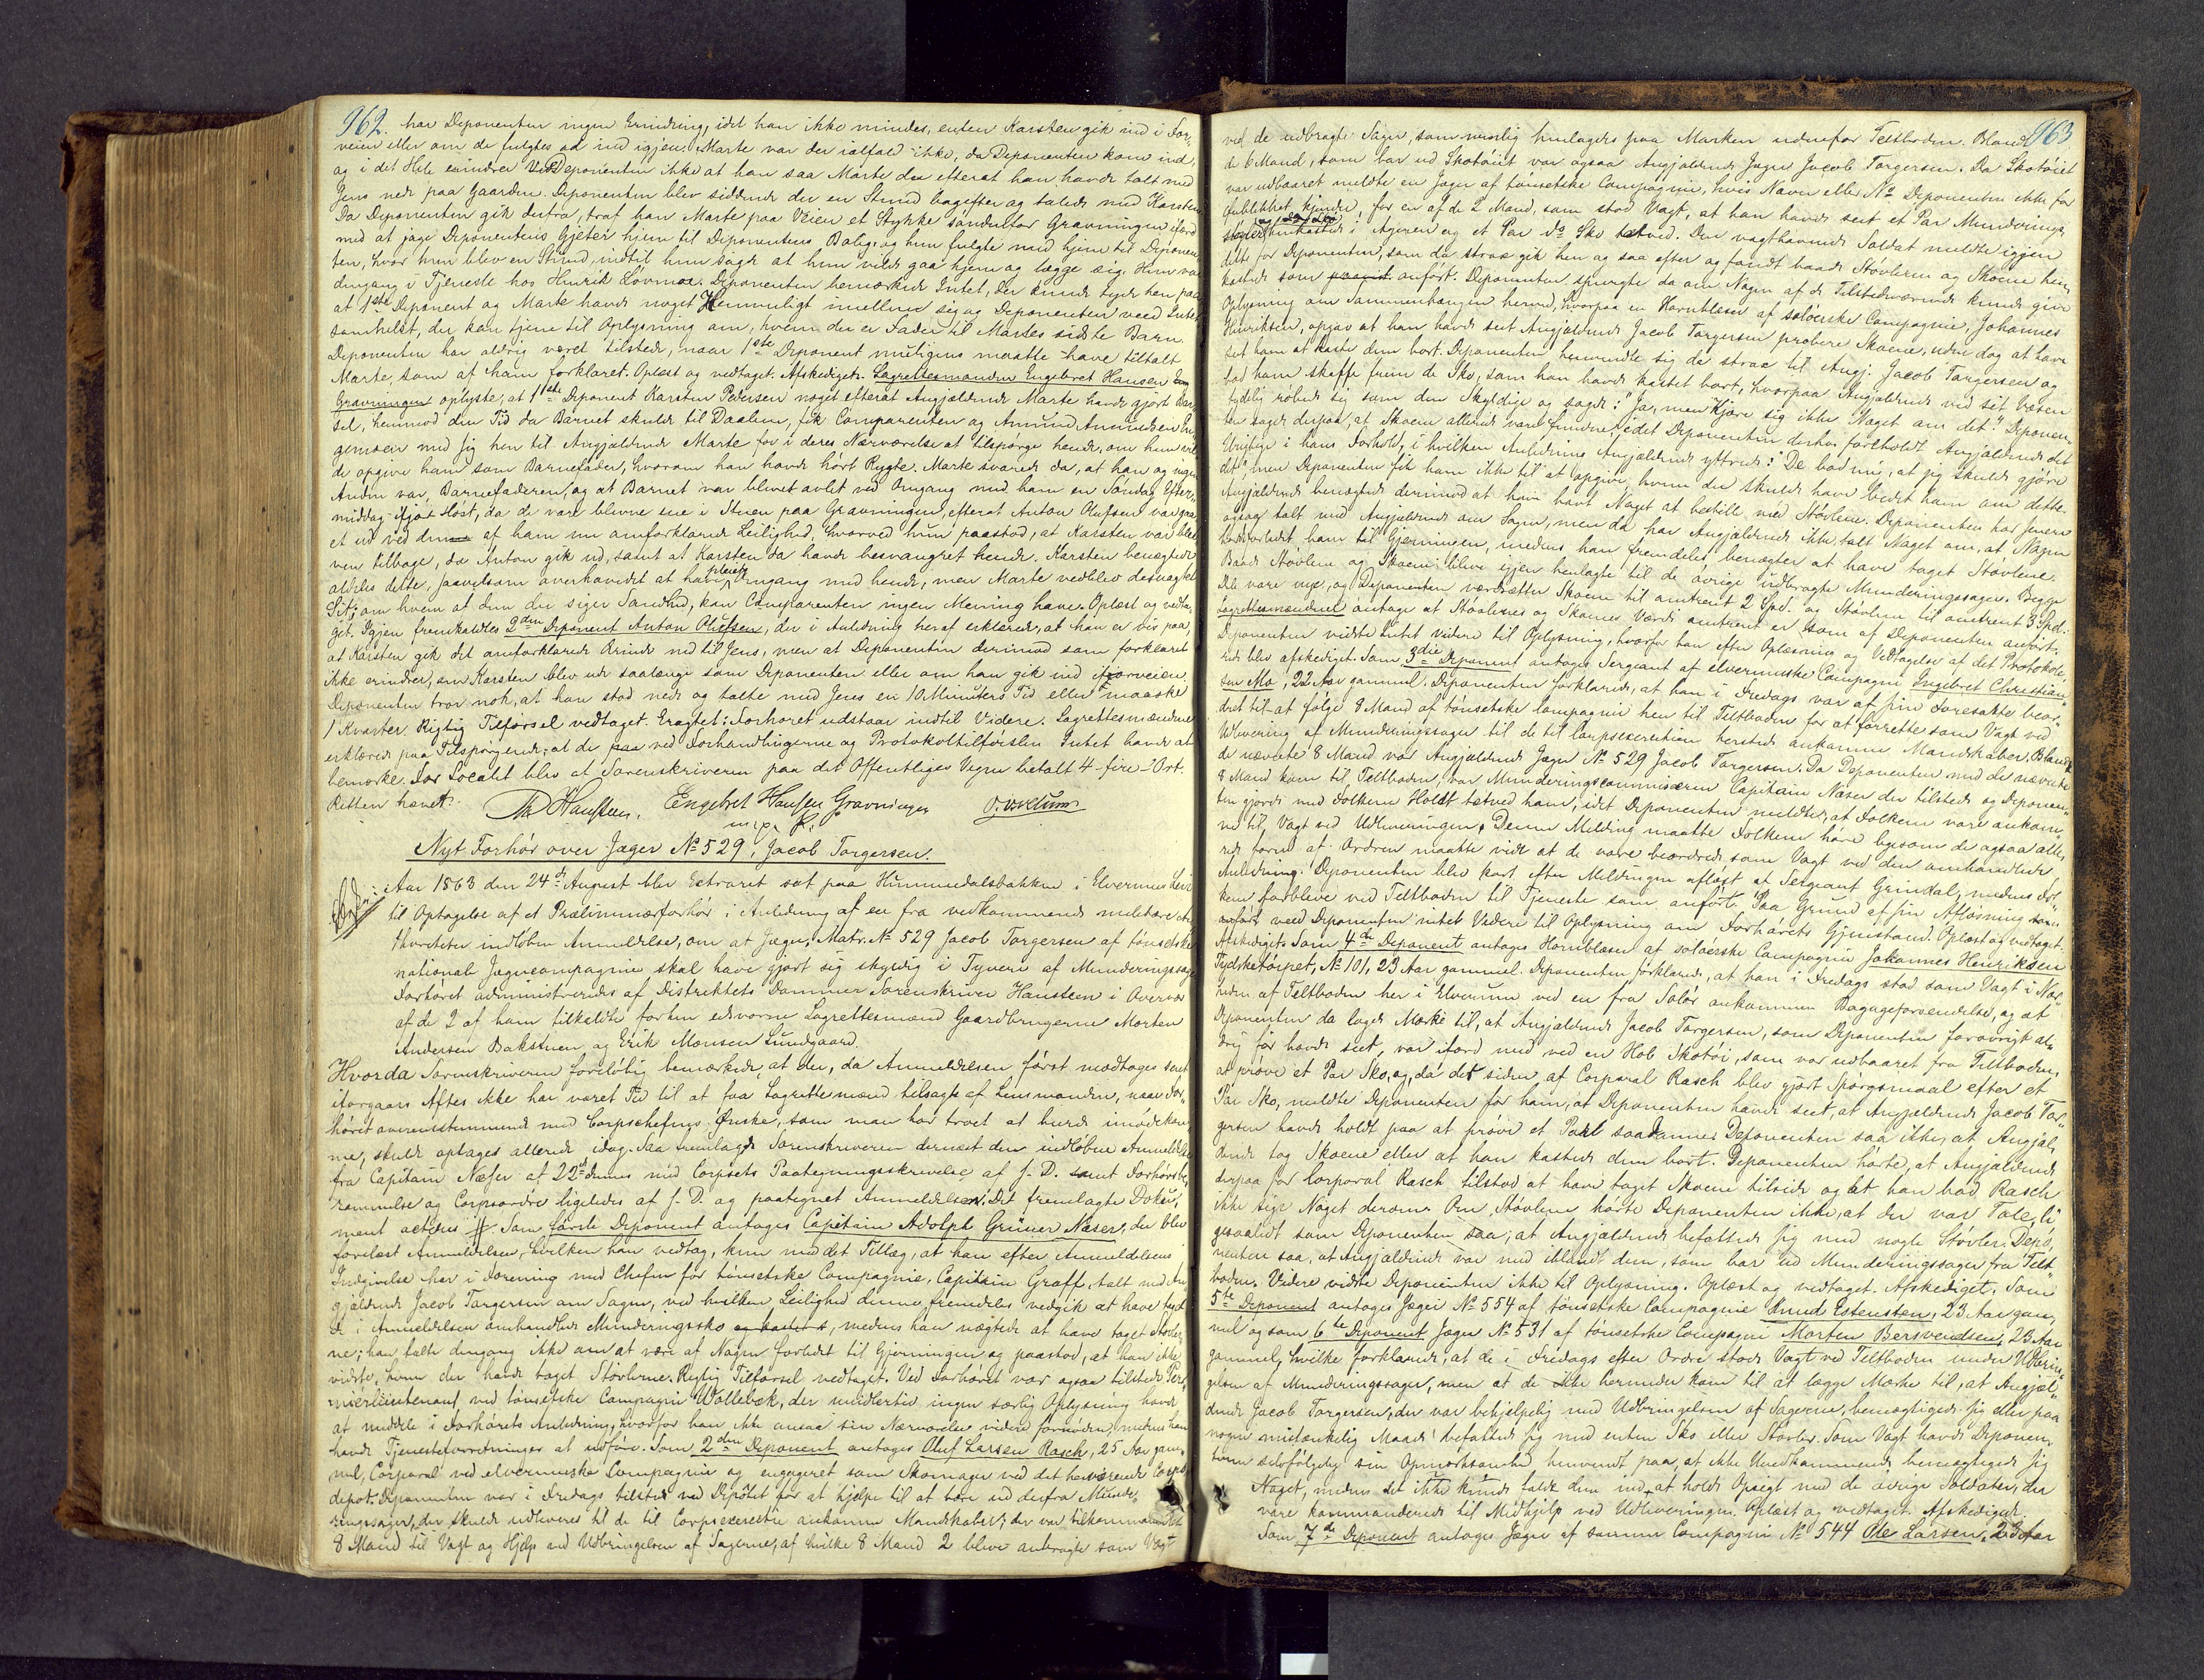 962.
har Deponenten ingen Erindring, idet han ikke mindes, enten Karsten gik ind i For-
veien eller om de fulgtes ad ind igjen. Marte var der ialfald ikke, da Deponenten kom ind,
og i det Hele erindrer Deponenten ikke at han saa Marte der efterat han havde talt med
Jens nede paa Gaarden. Deponenten blev siddende der en Stund bagefter og talede med Karsten.
Da Deponenten gik derfra, traf han Marte paa Veien et Stykke søndenfor Gravningen ifærd
med at jage Deponentens Gjeter hjem til Deponentens Bolig, og hun fulgte med hjem til Deponen-
ten, hvor hun blev en Stund, indtil hun sagde at hun vilde gaa hjem og lægge sig. Hun var
dengang i Tjeneste hos Henrik Løvmoe. Deponenten bemærkede Intet, der kunde tyde hen paa
at 1ste Deponent og Marte havde noget Hemmeligt imellem sig og Deponenten veed Intet
somhelst, der kan tjene til Oplysning om, hvem der er Fader til Martes sidste Barn.
Deponenten har aldrig været tilstede, naar 1ste Deponent muligens maatte have tiltalt
Marte, som af ham forklaret. Oplæst og vedtaget. Afskediget. Lagrettesmanden Engebret Hansen
Gravningen oplyste, at 1ste Deponent Karsten Pedersen noget efterat Angjældende Marte havde gjort Bar-
sel, henimod den Tid da Barnet skulde til Daaben, fik Comparenten og Amund Amundsen
med sig hen til Angjældende Marte for i deres Nærværelse at tilspørge hende, om hun vil-
de opgive ham som Barnefader, hvorom han havde hørt Rygte. Marte svarede da, at han og ingen
Anden var Barnefaderen, og at Barnet var blevet avlet ved Omgang med ham en Søndag Efter-
middag ifjor Høst, da de vare blevne ene i Stuen paa Gravningen, efterat Anton Olufsen var gaa-
et ud ved den af ham nu omforklarede Leilighed, hvorved hun paastod, at Karsten var ble-
ven tilbage, da Anton gik ud, samt at Karsten da havde besvangret hende. Karsten benægtede
aldeles dette, saavelsom overhovedet at have pleiet Omgang med hende, men Marte vedblev desuagtet
Sit; om hvem af dem der siger Sandhed, kan Comparenten ingen Mening have. Oplæst og vedta-
get. Igjen fremkaldtes 2den Deponent Anton Olufsen, der i Anledning heraf erklærede, at han er vis paa,
at Karsten gik det omforklarede Ærinde ned til Jens, men at Deponenten derimod som forklaret
ikke erindrer, om Karsten blev ude saalænge som Deponenten eller om han gik ind iforveien.
Deponenten tror nok, at han stod nede og talte med Jens en 10 Minutters Tid eller maaske
1 Kvarter. Rigtig Tilførsel vedtaget. Eragtet: Forhøret udstaar indtil Videre. Lagrettesmændene
erklærede paa Tilspørgende, at de ved Forhandlingerne og Protokoltilførslen Intet havde at
bemærke. For Localet blev af Sorenskriveren paa det Offentliges Vegne betalt 4 - fire - Ort.
Retten hævet.
Th Hansteen. Engebret Hansen Gravningen
m. p. P.
Nyt Forhør over Jæger No 529, Jacob Torgersen.
Aar 1863 den 24de August blev Extraret sat paa Hummeldalsbakken i Elverums Leir
til Optagelse af et Præliminærforhør i Anledning af en fra vedkommende militære Au-
thoriteter indløben Anmeldelse, om at Jæger, Matr. No 529 Jacob Torgersen af tønsetske
nationale Jægercompagnie skal have gjort sig skyldig i Tyveri af Munderingssager.
Forhøret administreredes af Distriktets Dommer Sorenskriver Hansteen i Overvær
af de 2 af ham tilkaldte forhen edsvorne Lagrettesmænd Gaardbrugerne Morten
Andersen Bakstuen og Erik Monsen Lundgaard.
Hvorda Sorenskriveren foreløbig bemærkede, at der, da Anmeldelsen først modtoges sent
iforgaars Aftes ikke har været Tid til at faa Lagrettemænd tilsagte af Lensmanden, naar For-
høret overensstemmende med Corpschefens Ønske, som man har troet at burde imødekom-
me, skulde optages allerede idag. Saa fremlagde Sorenskriveren dernæst den indløbne Anmeldelse
fra Capitain Næser af 22de dennes med Corpsets Paategningsskrivelse af s. D. samt Forhørsbe-
rammelse og Corpsordre ligeledes af s. D. og paategnet Anmeldelsen. Det fremlagte Doku-
ment acteres. Som første Deponent antoges Capitain Adolph Grüner Næser, der blev
forelæst Anmeldelsen, hvilken han vedtog, kun med det Tillæg, at han efter Anmeldelsens
Indgivelse har i Forening med Chefen for tønsetske Compagnie, Capitain Graff, talt med An-
gjældende Jacob Torgersen om Sagen, ved hvilken Leilighed denne fremdeles vedgik at have taget
de i Anmeldelsen omhandlede Munderingssko, medens han nægtede at have taget Støvler-
ne; han talte dengang ikke om at være af Nogen forledet til Gjerningen og paastod, at han ikke
vidste, hvem der havde taget Støvlerne. Rigtig Tilførsel vedtaget. Ved Forhøret var ogsaa tilstede Pre-
mierlieutenant ved tønsetske Compagnie Wollebæk, der imidlertid ingen særlig Oplysning havde
at meddele i Forhørets Anledning, hvorfor han ikke ansaa sin Nærværelse videre fornøden, medens han
havde Tjenesteforretninger at udføre. Som 2den Deponent antoges Oluf Larsen Rasch, 25 Aar gam-
mel, Corporal ved elverumske Compagnie og engageret som Skomager ved det herværende Corps-
depot. Deponenten var i Fredags tilstede ved Depotet for at hjelpe til at bære ud derfra Munde-
ringssager, der skulde udleveres til de til Corpsexersitie ankomne Mandskaber; der var tilkommanderet
8 Mand til Vagt og Hjelp ved Udbringelsen af Sagerne, af hvilke 8 Mand 2 bleve anbragte som Vagt
963
ved de udbragte Sager, som nemlig henlagdes paa Marken udenfor Teltboden. Blandt
de 6 Mand, som bar ud Skotøiet var ogsaa Angjældende Jæger Jacob Torgersen. Da Skotøiet
var udbaaret meldte en Jæger af tønsetske Compagnie, hvis Navn eller No Deponenten ikke for
Øieblikket kjender, for en af de 2 Mand, som stod Vagt, at han havde seet et Par Munderings-
støvler henkastede i Ageren og et Par do Sko tætved. Den vagthavende Soldat meldte igjen
dette for Deponenten, som da strax gik hen og saa efter og fandt baade Støvlerne og Skoene hen-
kastede som anført. Deponenten spurgte da om Nogen af de Tilstedeværende kunde give
Oplysning om Sammenhængen herved, hvorpaa en Hornblæser af solørske Compagnie, Johannes
Henriksen, opgav at han havde seet Angjældende Jacob Torgersen probere Skoene, uden dog at have
seet ham at kaste dem bort. Deponenten henvendte sig da strax til Angj. Jacob Torgersen og
bad ham skaffe frem de Sko, som han havde kastet bort, hvorpaa Angjældende ved sit Væsen
tydelig røbede sig som den Skyldige og sagde: "Ja, men kjære sig ikke Noget om det". Deponen-
ten sagde derpaa, at Skoene allerede vare fundne, idet Deponenten derhos foreholdt Angjældende det
Urigtige i hans Forhold, i hvilken Anledning Angjældende yttrede: "De bad mig, at jeg skulde gjøre
det" men Deponenten fik ham ikke til at opgive, hvem der skulde have bedet ham om dette.
Angjældende benægtede derimod at have havt Noget at bestille med Støvlene. Deponenten har senere
ogsaa talt med Angjældende om Sagen, men da har Angjældende ikke talt Noget om, at Nogen
havde forledet ham til Gjerningen, medens han fremdeles benægter at have taget Støvlene.
Baade Støvlene og Skoene bleve igjen henlagte til de øvrige udbragte Munderingssager. Begge
Dele vare nye, og Deponenten værdsætter Skoene til omtrent 2 Spd. og Støvlene til omtrent 3 Spd.
Lagrettesmændene antage at Støvlernes og Skoenes Værdi omtrent er som af Deponenten anført.
Deponenten vidste Intet videre til Oplysning, hvorfor han efter Oplæsning og Vedtagelse af det Protokolle-
rede blev afskediget. Som 3die Deponent antoges Sergeant af elverumske Compagni Ingebret Christian-
sen Mo, 22 Aar gammel. Deponenten forklarede, at han i Fredags var af sin Foresatte beor-
dret til at følge 8 Mand af tønsetske Compagnie hen til Teltboden for at forrette som Vagt ved
Udlevering af Munderingssager til de til Corpsexersitien herstedes ankomne Mandskaber. Blandt
de nævnte 8 Mand var Angjældende Jæger No 529 Jacob Torgersen. Da Deponenten med de nævnte
8 Mand kom til Teltboden, var Munderingscommissæren Capitain Næser der tilstede og Deponen-
ten gjorde med Folkene Holdt tætved ham, idet Deponenten meldte, at Folkene vare ankom-
ne til Vagt ved Udleveringen. Denne Melding maatte Folkene høre ligesom de ogsaa alle-
rede forud af Ordren maatte vide at de vare beordrede som Vagt ved den omhandlede
Anledning. Deponenten blev kort efter Meldingen afløst af Sergeant Grindal, medens Fol-
kene forbleve ved Teltboden til Tjeneste som anført. Paa Grund af sin Afløsning som
anført veed Deponenten intet Videre til Oplysning om Forhørets Gjenstand. Oplæst og vedtaget.
Afskediget. Som 4de Deponent antoges Hornblæser af solørske Compagnie Johannes Henriksen
Tydsketorpet, No 101, 23 Aar gammel. Deponenten forklarede, at han i Fredags stod som Vagt i Nær-
heden af Teltboden her i Elverum ved en fra Solør ankommen Bagageforsendelse, og at
Deponenten da lagde Mærke til, at Angjældende Jacob Torgersen, som Deponenten forøvrigt al-
drig før havde seet, var ifærd med ved en Hob Skotøi, som var udbaaret fra Teltboden,
at prøve et Par Sko, og, da det siden af Corporal Rasch blev gjort Spørgsmaal efter et
Par Sko, meldte Deponenten for ham, at Deponenten havde seet, at Angjældende Jacob Tor-
gersen havde holdt paa at prøve et Par saadanne. Deponenten saa ikke, at Angjæl-
dende tog Skoene eller at han kastede dem bort. Deponenten hørte, at Angjældende
derpaa for Corporal Rasch tilstod at have taget Skoene tilside og at han bad Rasch
ikke sige Noget derom. Om Støvlene hørte Deponenten ikke, at der var Tale, li-
gesaalidt som Deponenten saa, at Angjældende befattede sig med nogle Støvler. Depo-
nenten saa, at Angjældende var med iblandt dem, som bar ud Munderingssager fra Telt-
boden. Videre vidste Deponenten ikke til Oplysning. Oplæst og vedtaget. Afskediget. Som
5te Deponent antoges Jæger No 554 af tønsetske Compagnie Knud Estensen, 23 Aar gam-
mel og som 6te Deponent Jæger No 531 af tønsetske Compagni Morten Bersvendsen, 23 Aar
gammel, hvilke forklarede, at de i Fredags efter Ordre stode Vagt ved Teltboden under Udbrin-
gelsen af Munderingssager, men at de ikke herunder kom til at lægge Mærke til, at Angjæl-
dende Jacob Torgersen, der var behjelpelig med Udbringelsen af Sagerne, bemægtigede sig eller paa
nogen mistænkelig Maade befattede sig med enten Sko eller Støvler. Som Vagt havde Deponen-
terne selvfølgelig sin Opmærksomhed henvendt paa, at ikke Uvedkommende bemægtigede sig
Noget, medens det ikke kunde falde dem ind, at holde Opsigt med de øvrige Soldater, der
vare kommanderede til Medhjelp ved Udleveringen. Oplæst og vedtaget. Afskedigede.
Som 7de Deponent antoges Jæger af samme Compagni No 544 Ole Larsen, 23 Aar